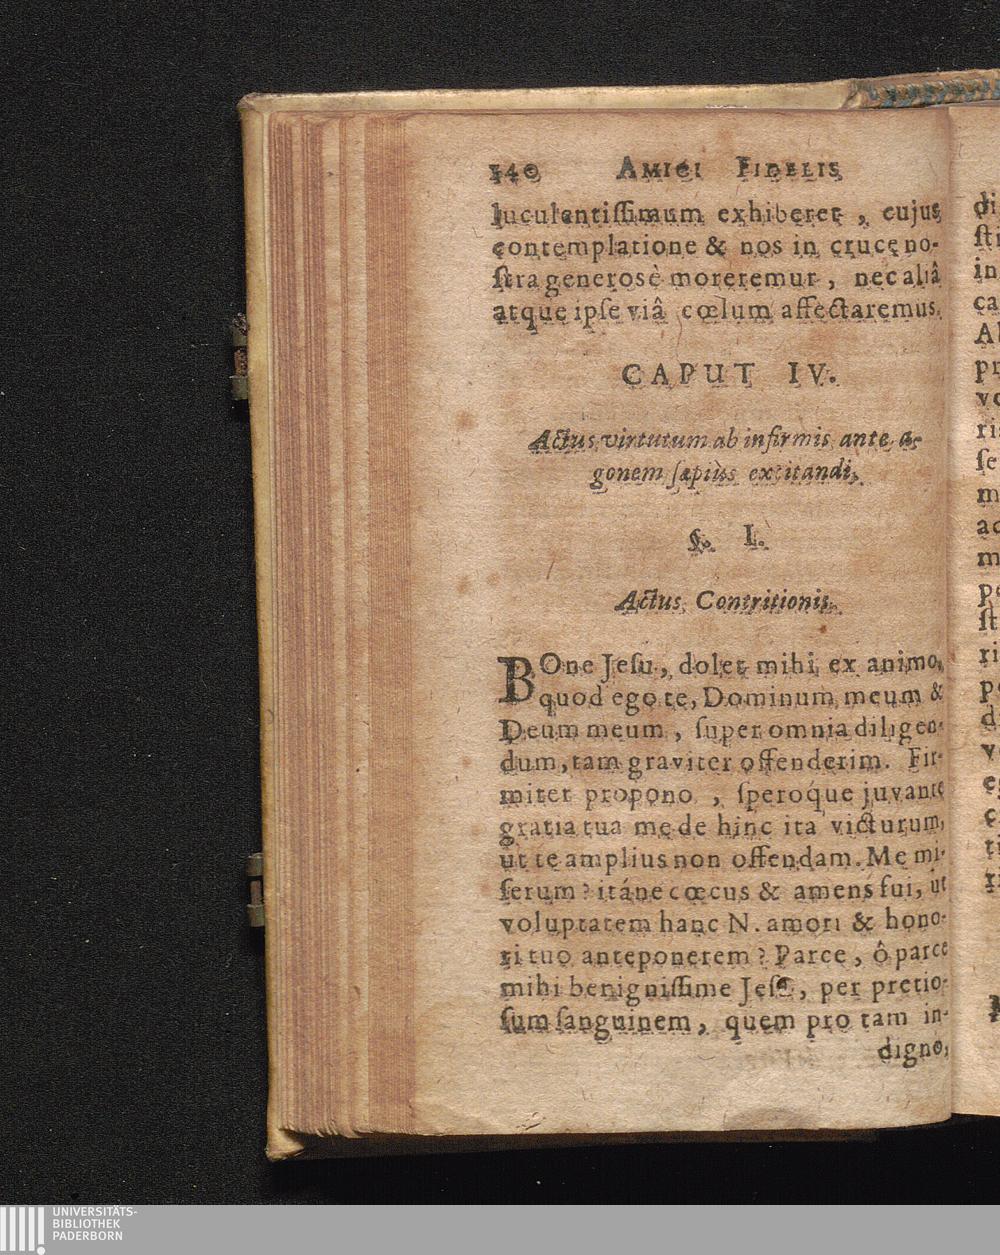 340 AMICI FIDELIS
luculentiſſimum exhiberet, cujus
contemplatione & nos in cruce no-
ſtra generosè moreremur, nec aliâ
atque ipſe viâ cœlum affectaremus.
CAPUT IV.
Actus virtutum ab infirmis ante a-
gonem ſæpiùs excitandi.
§. I.
Actus Contritionis.
BOne Jeſu, dolet mihi ex animo,
quod ego te, Dominum meum &
Deum meum, ſuper omnia diligen-
dum, tam graviter offenderim. Fir-
miter propono, ſperoque juvante
gratia tua me de hinc ita victurum,
ut te amplius non offendam. Me mi-
ſerum? itáne cœcus & amens fui, ut
voluptatem hanc N. amori & hono-
ri tuo anteponerem? Parce, ô parce
mihi benigniſſime Jeſu, per pretio-
ſum ſanguinem, quem pro tam in-
digno,
di
ſti
in
ca
pr
vo
ri
ſe
m
ac
m
pe
ſt
ri
po
d
ve
eg
ti
UNIVERSITÄTS-
BIBLIOTHEK
PADERBORN